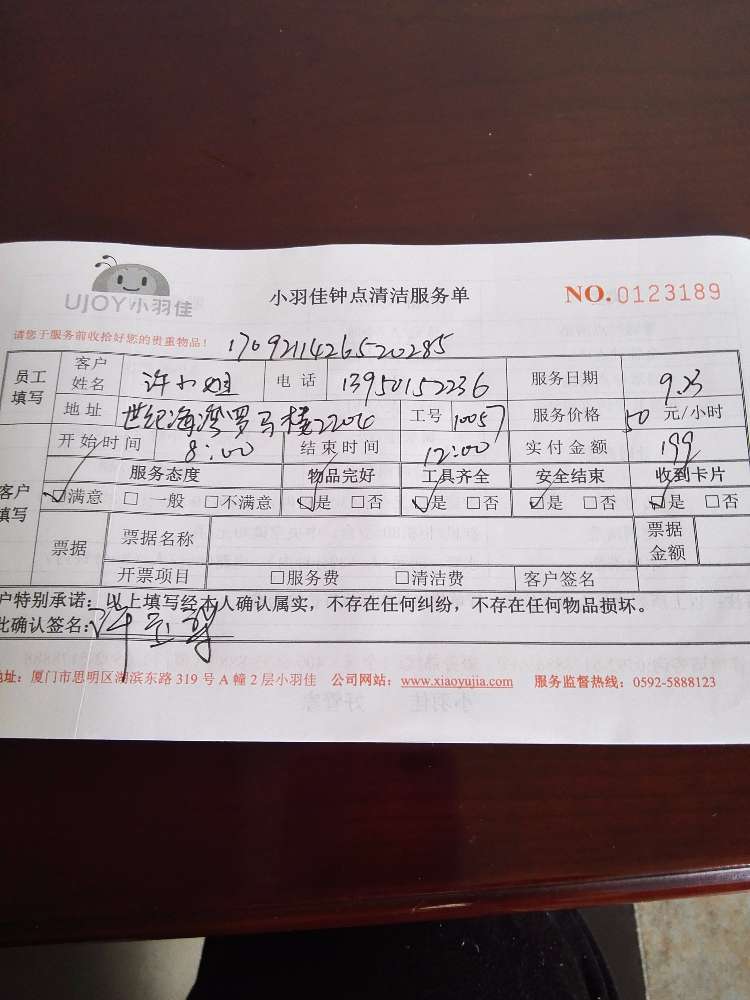 UJOY小羽佳
小羽佳钟点清洁服务单
NO.0123189
请您于服务前收拾好您的贵重物品!
170921142652028 5
员工填写 客户姓名 许小姐 电话 13950152236 服务日期 9.23
地址 世纪海湾罗马楼2204 工号 10057 服务价格 50 元/小时
开始时间 8:00 结束时间 12:00 实付金额 199
客户填写 服务态度 物品完好 工具齐全 安全结束 收到卡片
☑满意 □一般 □不满意 ☑是 □否 ☑是 □否 ☑是 □否 ☑是 □否
票据 票据名称 票据金额
开票项目 □服务费 □清洁费 客户签名
户特别承诺:以上填写经本人确认属实,不存在任何纠纷,不存在任何物品损坏。
此确认签名:
地址:厦门市思明区湖滨东路 319 号 A 幢 2 层小羽佳 公司网站:www.xiaoyujia.com 服务监督热线:0592-5888123